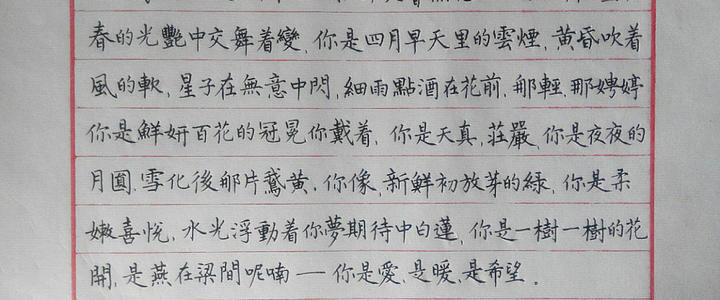 春的光艷中交舞着變,你是四月早天里的雲煙,黄昏吹着
風的軟,星子在無意中閃,細雨點酒在花前,那輕,那娉婷
你是鮮妍百花的冠冕你戴着,你是天真,莊嚴,你是夜夜的
月圓.雪化後那片鵝黄.你像,新鮮初放芽的綠,你是柔
嫩喜悅,水光浮動着你夢期待中白蓮,你是一樹一樹的花
開,是燕在梁間呢喃——你是愛,是暖,是希望。